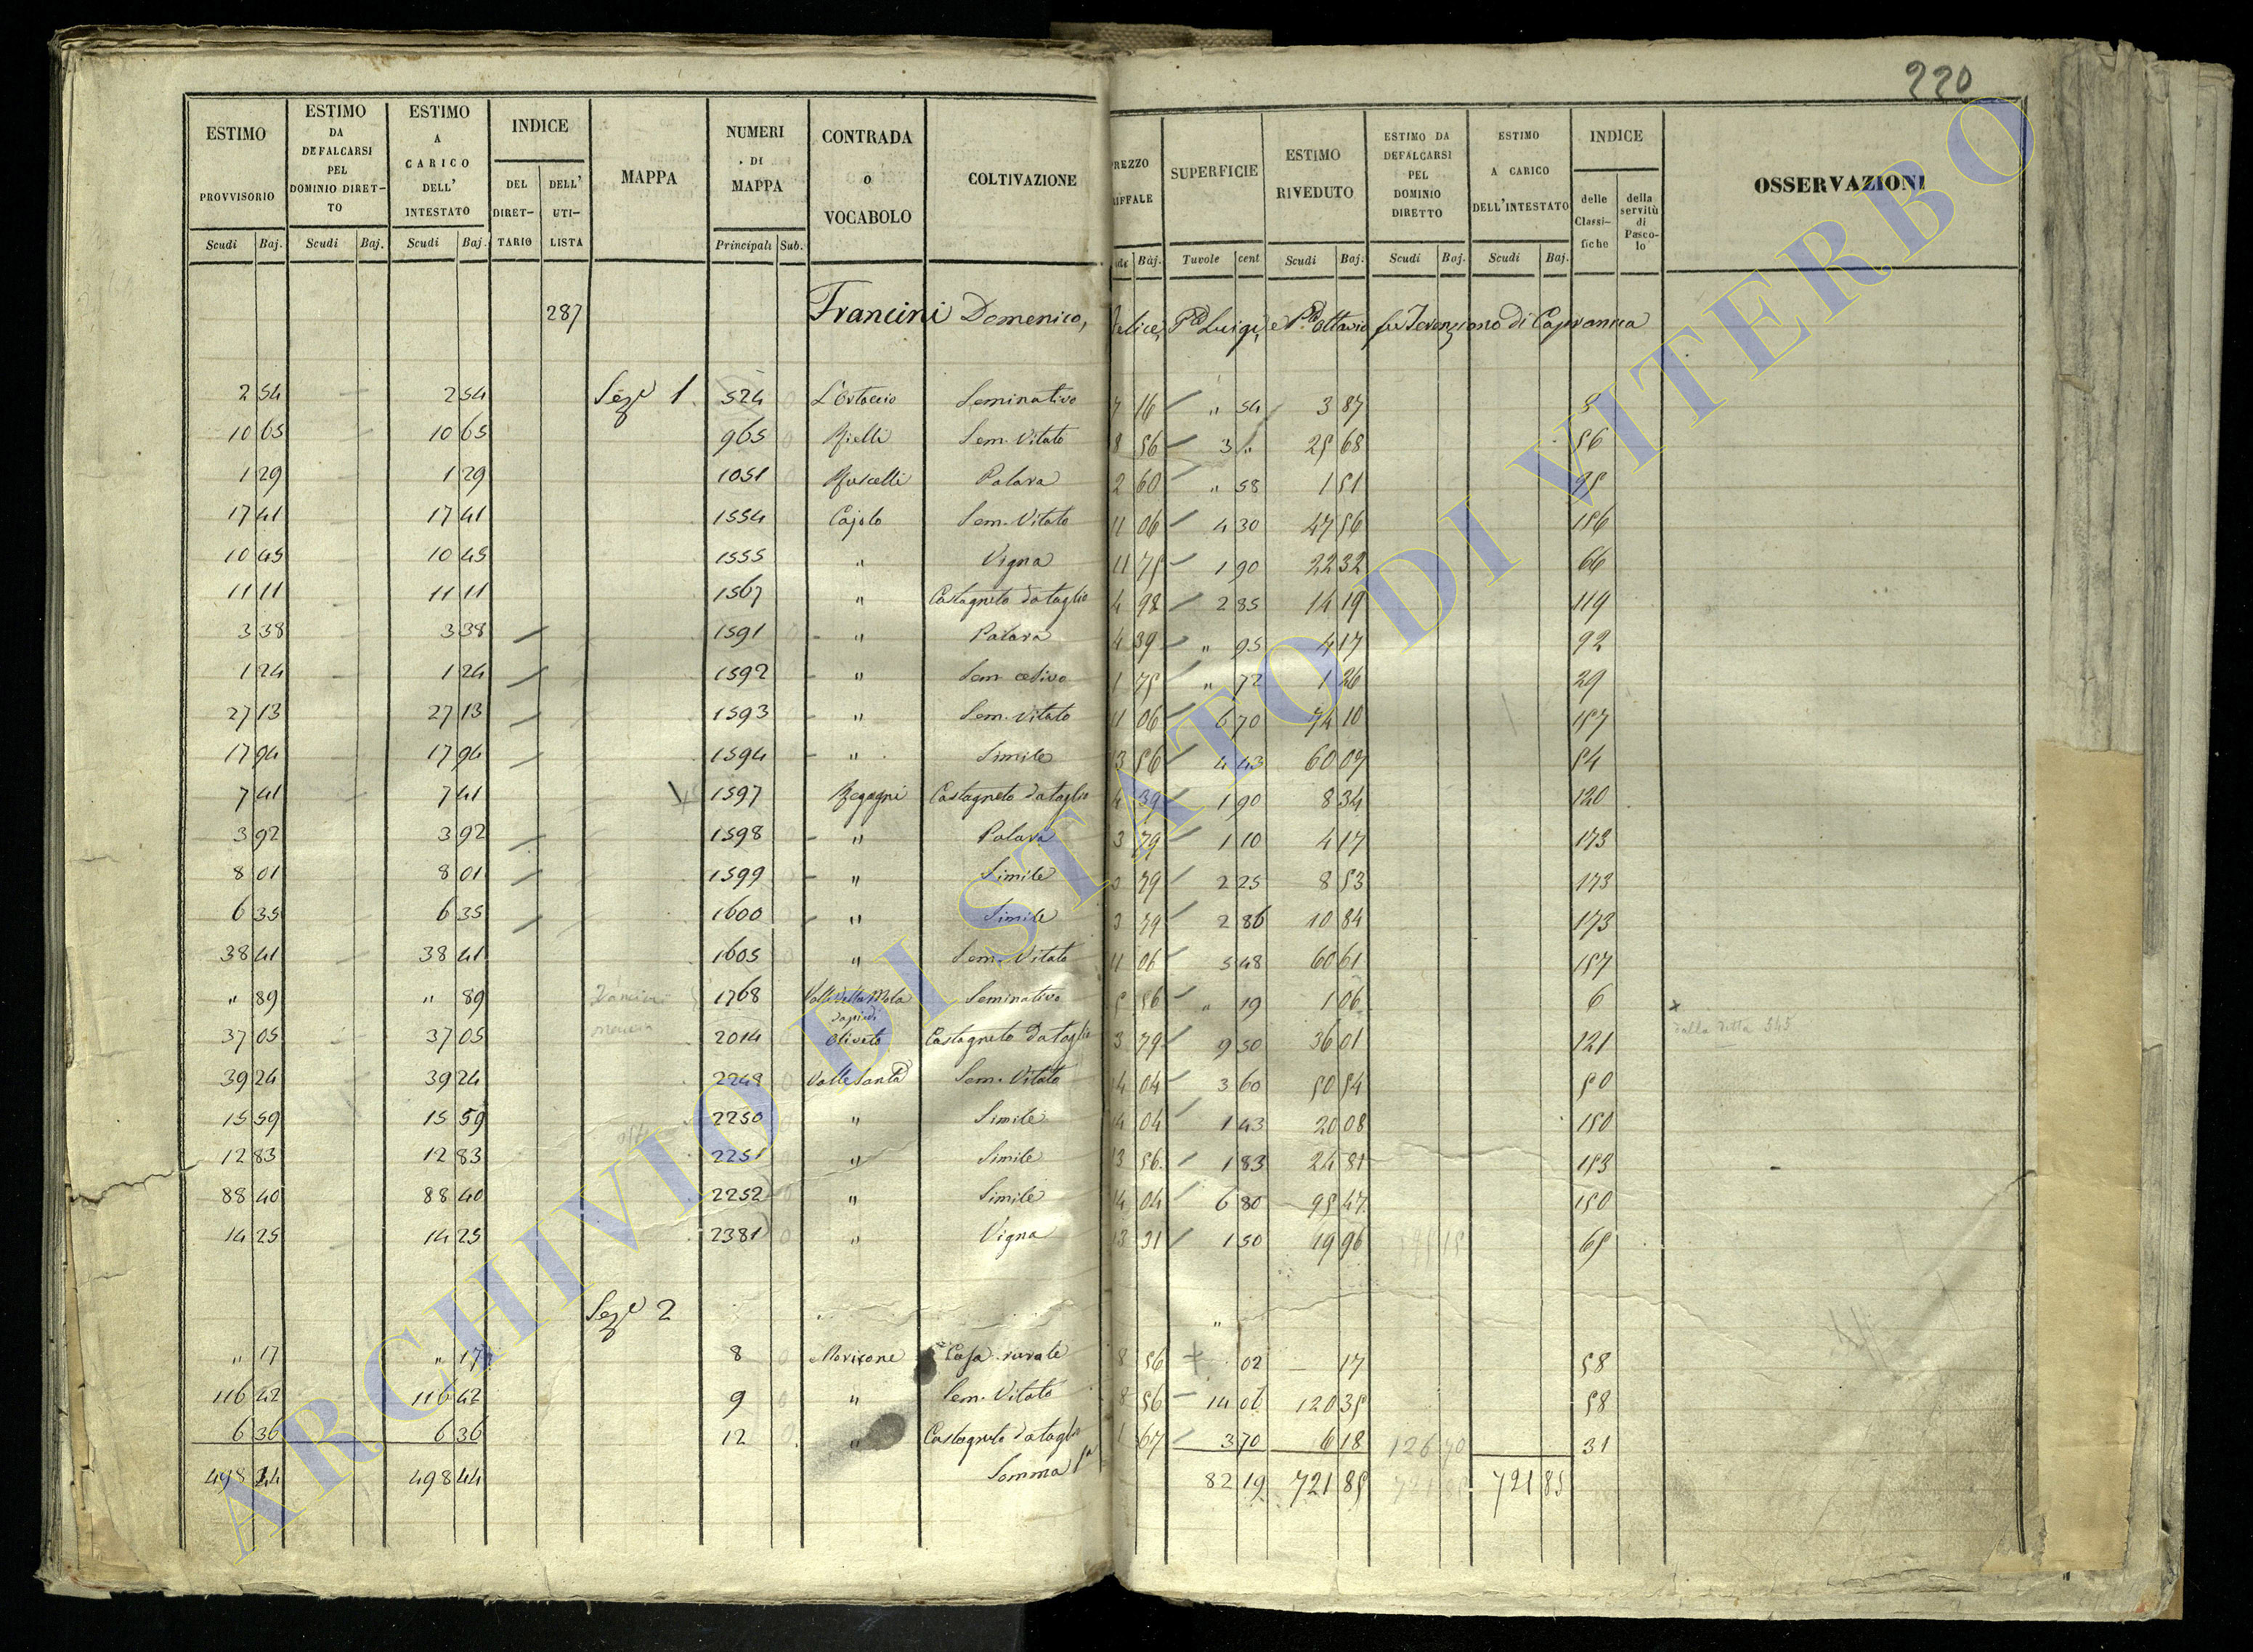 220
ESTIMO PROVVISORIO Scudi Baj. ESTIMO DA DEFALCARSI PEL DOMINIO DIRETTO Scudi Baj. ESTIMO A CARICO DELL' INTESTATO Scudi Baj. INDICE DEL DIRETTARIO DELL' UTILISTA MAPPA NUMERI DI MAPPA Principali Sub. CONTRADA o VOCABOLO COLTIVAZIONE PREZZO Baj. SUPERFICIE Tavole cent ESTIMO RIVEDUTO Scudi Baj. ESTIMO DA DEFALCARSI PEL DOMINIO DIRETTO Scudi Baj. ESTIMO A CARICO DELL'INTESTATO Scudi Baj. INDICE delle Classifiche della servitù di Pascolo OSSERVAZIONI
287 Francini Domenico, Felice, Pte Luigi, e Pte Ottavio fu Terenziano di Capranica
2 54 2 54 Seze 1. 524 L'Ortaccio Seminativo 7 16 " 54 3 87 5
10 65 10 65 965 Rielli Sem. Vitato 8 56 3 " 25 68 56
1 29 1 29 1051 Ruscelli Palara 2 60 " 58 1 51 95
17 41 17 41 1554 Cajolo Sem. Vitato 11 06 4 30 47 56 156
10 45 10 45 1555 " Vigna 11 75 1 90 22 32 66
11 11 11 11 1567 " Castagneto da taglio 4 98 2 85 14 19 119
3 38 3 38 1591 " Palara 4 39 " 95 4 17 92
1 24 1 24 1592 " Sem cesivo 1 75 " 72 1 26 29
27 13 27 13 1593 " Sem. Vitato 11 06 6 70 74 10 157
17 94 17 94 1594 " Simile 13 56 4 43 60 07 54
7 41 7 41 1597 Regagni Castagneto da taglio 4 39 1 90 8 34 120
3 92 3 92 1598 " Palara 3 79 1 10 4 17 173
8 01 8 01 1599 " Simile 3 79 2 25 8 53 173
6 35 6 35 1600 " Simile 3 79 2 86 10 84 173
38 41 38 41 1605 " Sem. Vitato 11 06 5 48 60 61 157
" 89 " 89 1768 Valle della Mola Seminativo 5 56 " 19 1 06 6
37 05 37 05 2014 Oliveto Castagneto da taglio 3 79 9 50 36 01 121
dalla ditta 545
39 24 39 24 2248 Valle Santa Sem. Vitato 14 04 3 60 50 54 50
15 59 15 59 2250 " Simile 14 04 1 43 20 08 150
12 83 12 83 2251 " Simile 13 56 1 83 24 81 153
88 40 88 40 2252 " Simile 14 04 6 80 95 47 150
14 25 14 25 2381 " Vigna 13 31 1 50 19 96 65
Seze 2
" 17 " 17 8 Moricone Casa rurale 8 56 02 17 58
116 42 116 42 9 " Sem. Vitato 8 56 14 06 120 35 58
6 36 6 36 12 " Castagneto da taglio 1 67 3 70 6 18 126 70 31
498 44 498 44 Somma 82 19 721 85 721 85
ARCHIVIO DI STATO DI VITERBO